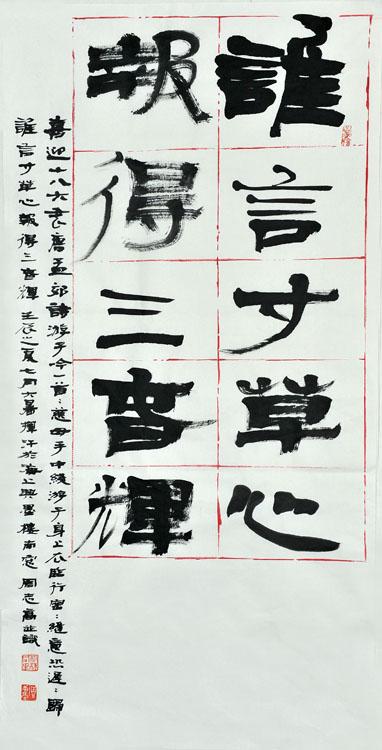 誰言寸草心
報得三春輝
喜迎十八大唐孟郊詩游子吟一首：慈母手中綫游子身上衣臨行密：縫意恐遲：歸
誰言寸草心報得三春輝壬辰之夏七月大暑揮汗於海上興墨樓南窗周志高並識